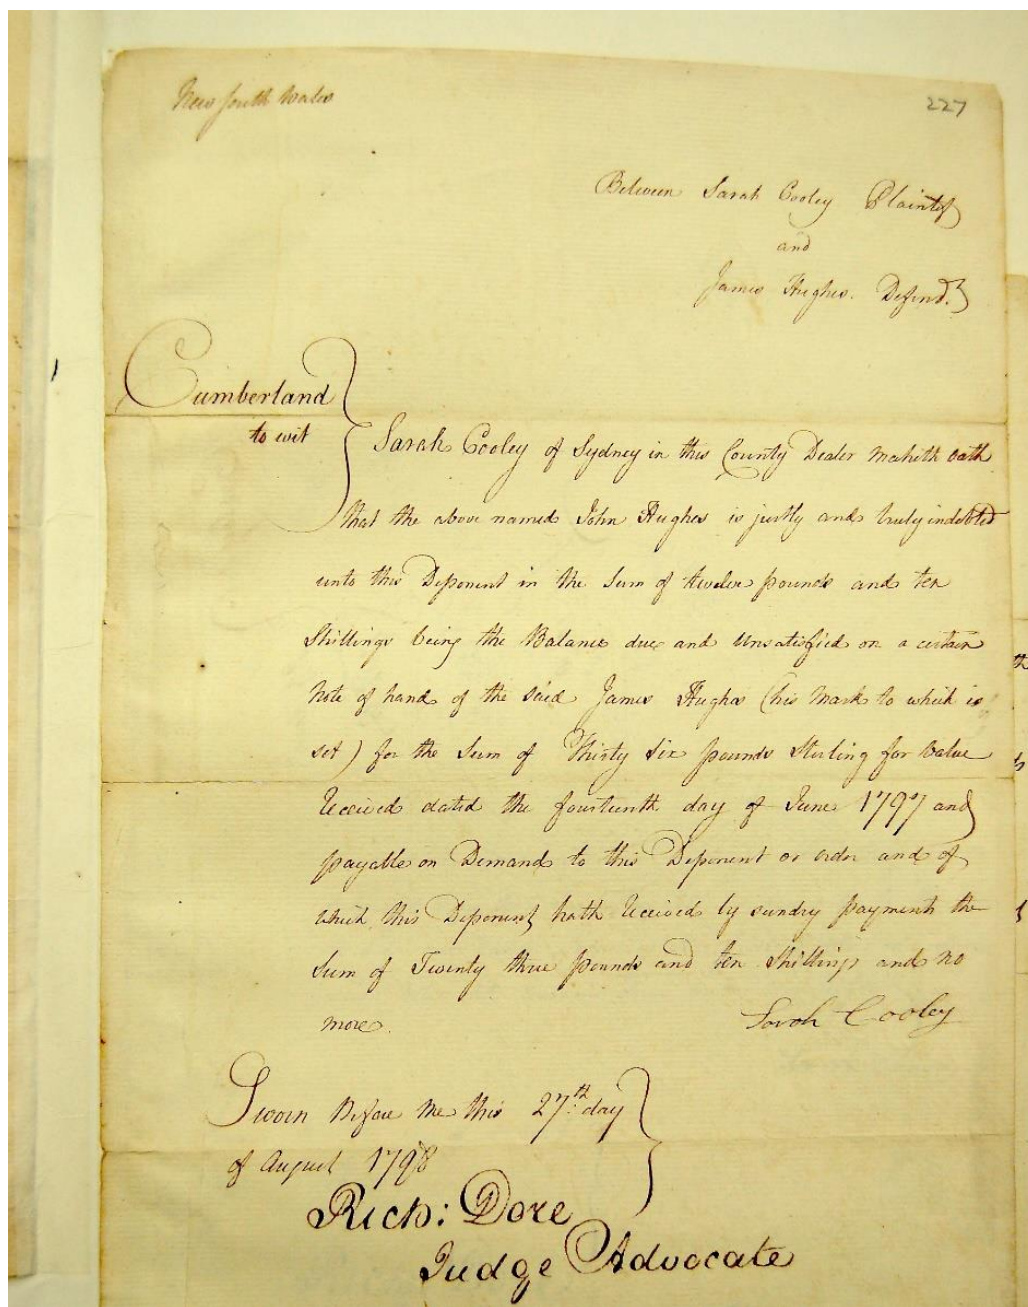 New South Wales
227
Between Sarah Cooley Plaintiff
and
James Hughes. Defend.t
Cumberland
to wit
Sarah Cooley of Sydney in this County Dealer maketh oath
that the above named John Hughes is justly and truly indebted
unto this Deponent in the Sum of twelve pounds and ten
Shillings being the Balance due and Unsatisfied on a certain
Note of hand of the said James Hughes (his Mark to which is
set) for the Sum of Thirty Six pounds Sterling for Value
Received dated the fourteenth day of June 1797 and
payable on Demand to this Deponent or order and of
which this Deponent hath Received by sundry payments the
Sum of Twenty three pounds and ten Shillings and no
more.
Sarah Cooley
Sworn Before Me this 27th day
of August 1798
Rich: Dore
Judge Advocate